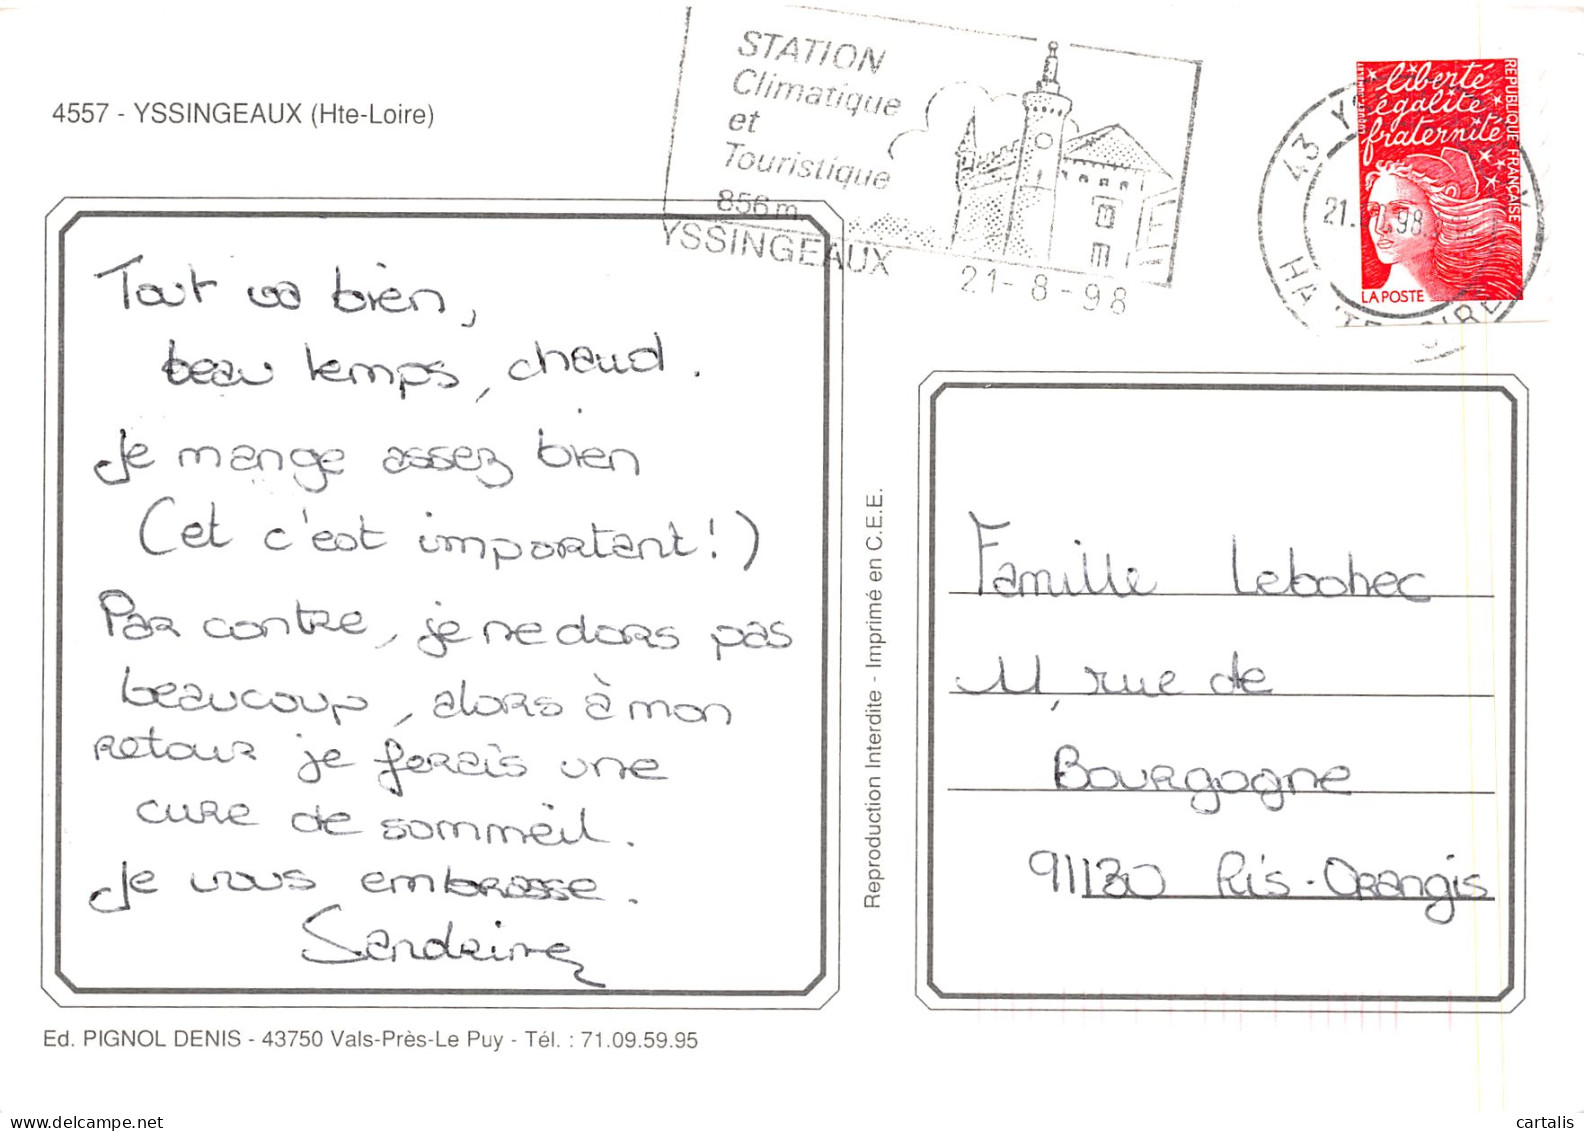 4557 - YSSINGEAUX (Hte-Loire)
STATION
Climatique
et
Touristique
856 m.
YSSINGEAUX
21-8-98
43
21. 98
liberté
égalité
fraternité
REPUBLIQUE FRANÇAISE
LA POSTE
Tout va bien,
beau temps, chaud.
Je mange assez bien
(et c'est important!)
Par contre, je ne dors pas
beaucoup, alors à mon
retour je ferais une
cure de sommeil.
Je vous embrasse.
Sandrine
Reproduction Interdite - Imprimé en C.E.E.
Famille Lebohec
11, rue de
Bourgogne
91130 Ris-Orangis
Ed. PIGNOL DENIS - 43750 Vals-Près-Le Puy - Tél. : 71.09.59.95
delcampe.net
cartalis